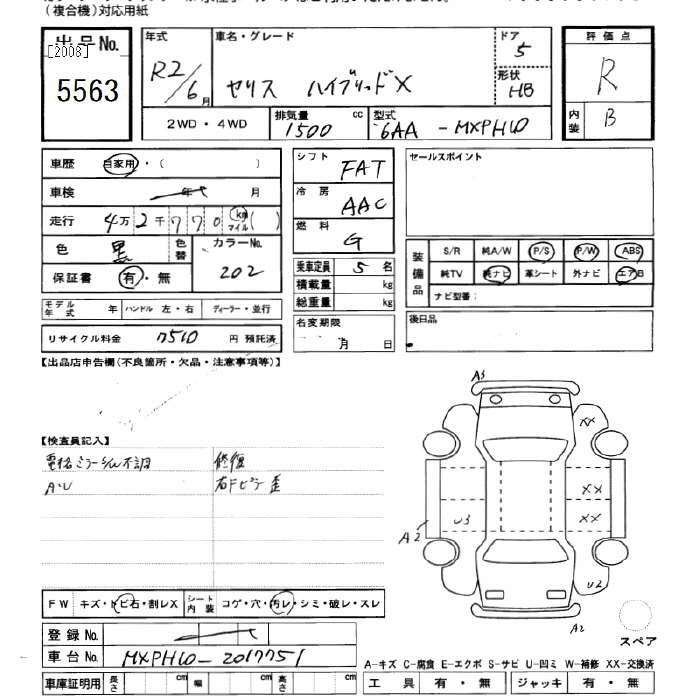 (複合機)対応用紙
出品No.
[2008]
5563
年式
R2/6月
車名・グレード
ヤリス ハイブリッドX
ドア
5
形状
HB
評価点
R
内装
B
2WD・4WD
排気量 1500 cc
型式 6AA-MXPH10
車歴 自家用・( )
車検 年 月
走行 4万2千770 km マイル( )
色 黒 色替
カラーNo. 202
保証書 有・無
モデル年式 年 ハンドル 左・右 ディーラー・並行
リサイクル料金 7510 円 預託済
シフト FAT
冷房 AAC
燃料 G
乗車定員 5 名
積載量 kg
総重量 kg
名変期限
月 日
セールスポイント
装備品
S/R 純A/W P/S P/W ABS
純TV 純ナビ 革シート 外ナビ エアB
ナビ型番:
後日品
【出品店申告欄(不良箇所・欠品・注意事項等)】
【検査員記入】
電格ミラー 不調 修復
A・U 右Fピラー歪
A3
XX
XX
XX
U3
A2
U2
A2
スペア
FW キズ・トビ石・割レX シート内装 コゲ・穴・汚レ・シミ・破レ・スレ
登録No.
車台No. MXPH10-2017751
車庫証明用 長さ cm 幅 cm 高さ cm
A-キズ C-腐食 E-エクボ S-サビ U-凹ミ W-補修 XX-交換済
工具 有・無 ジャッキ 有・無